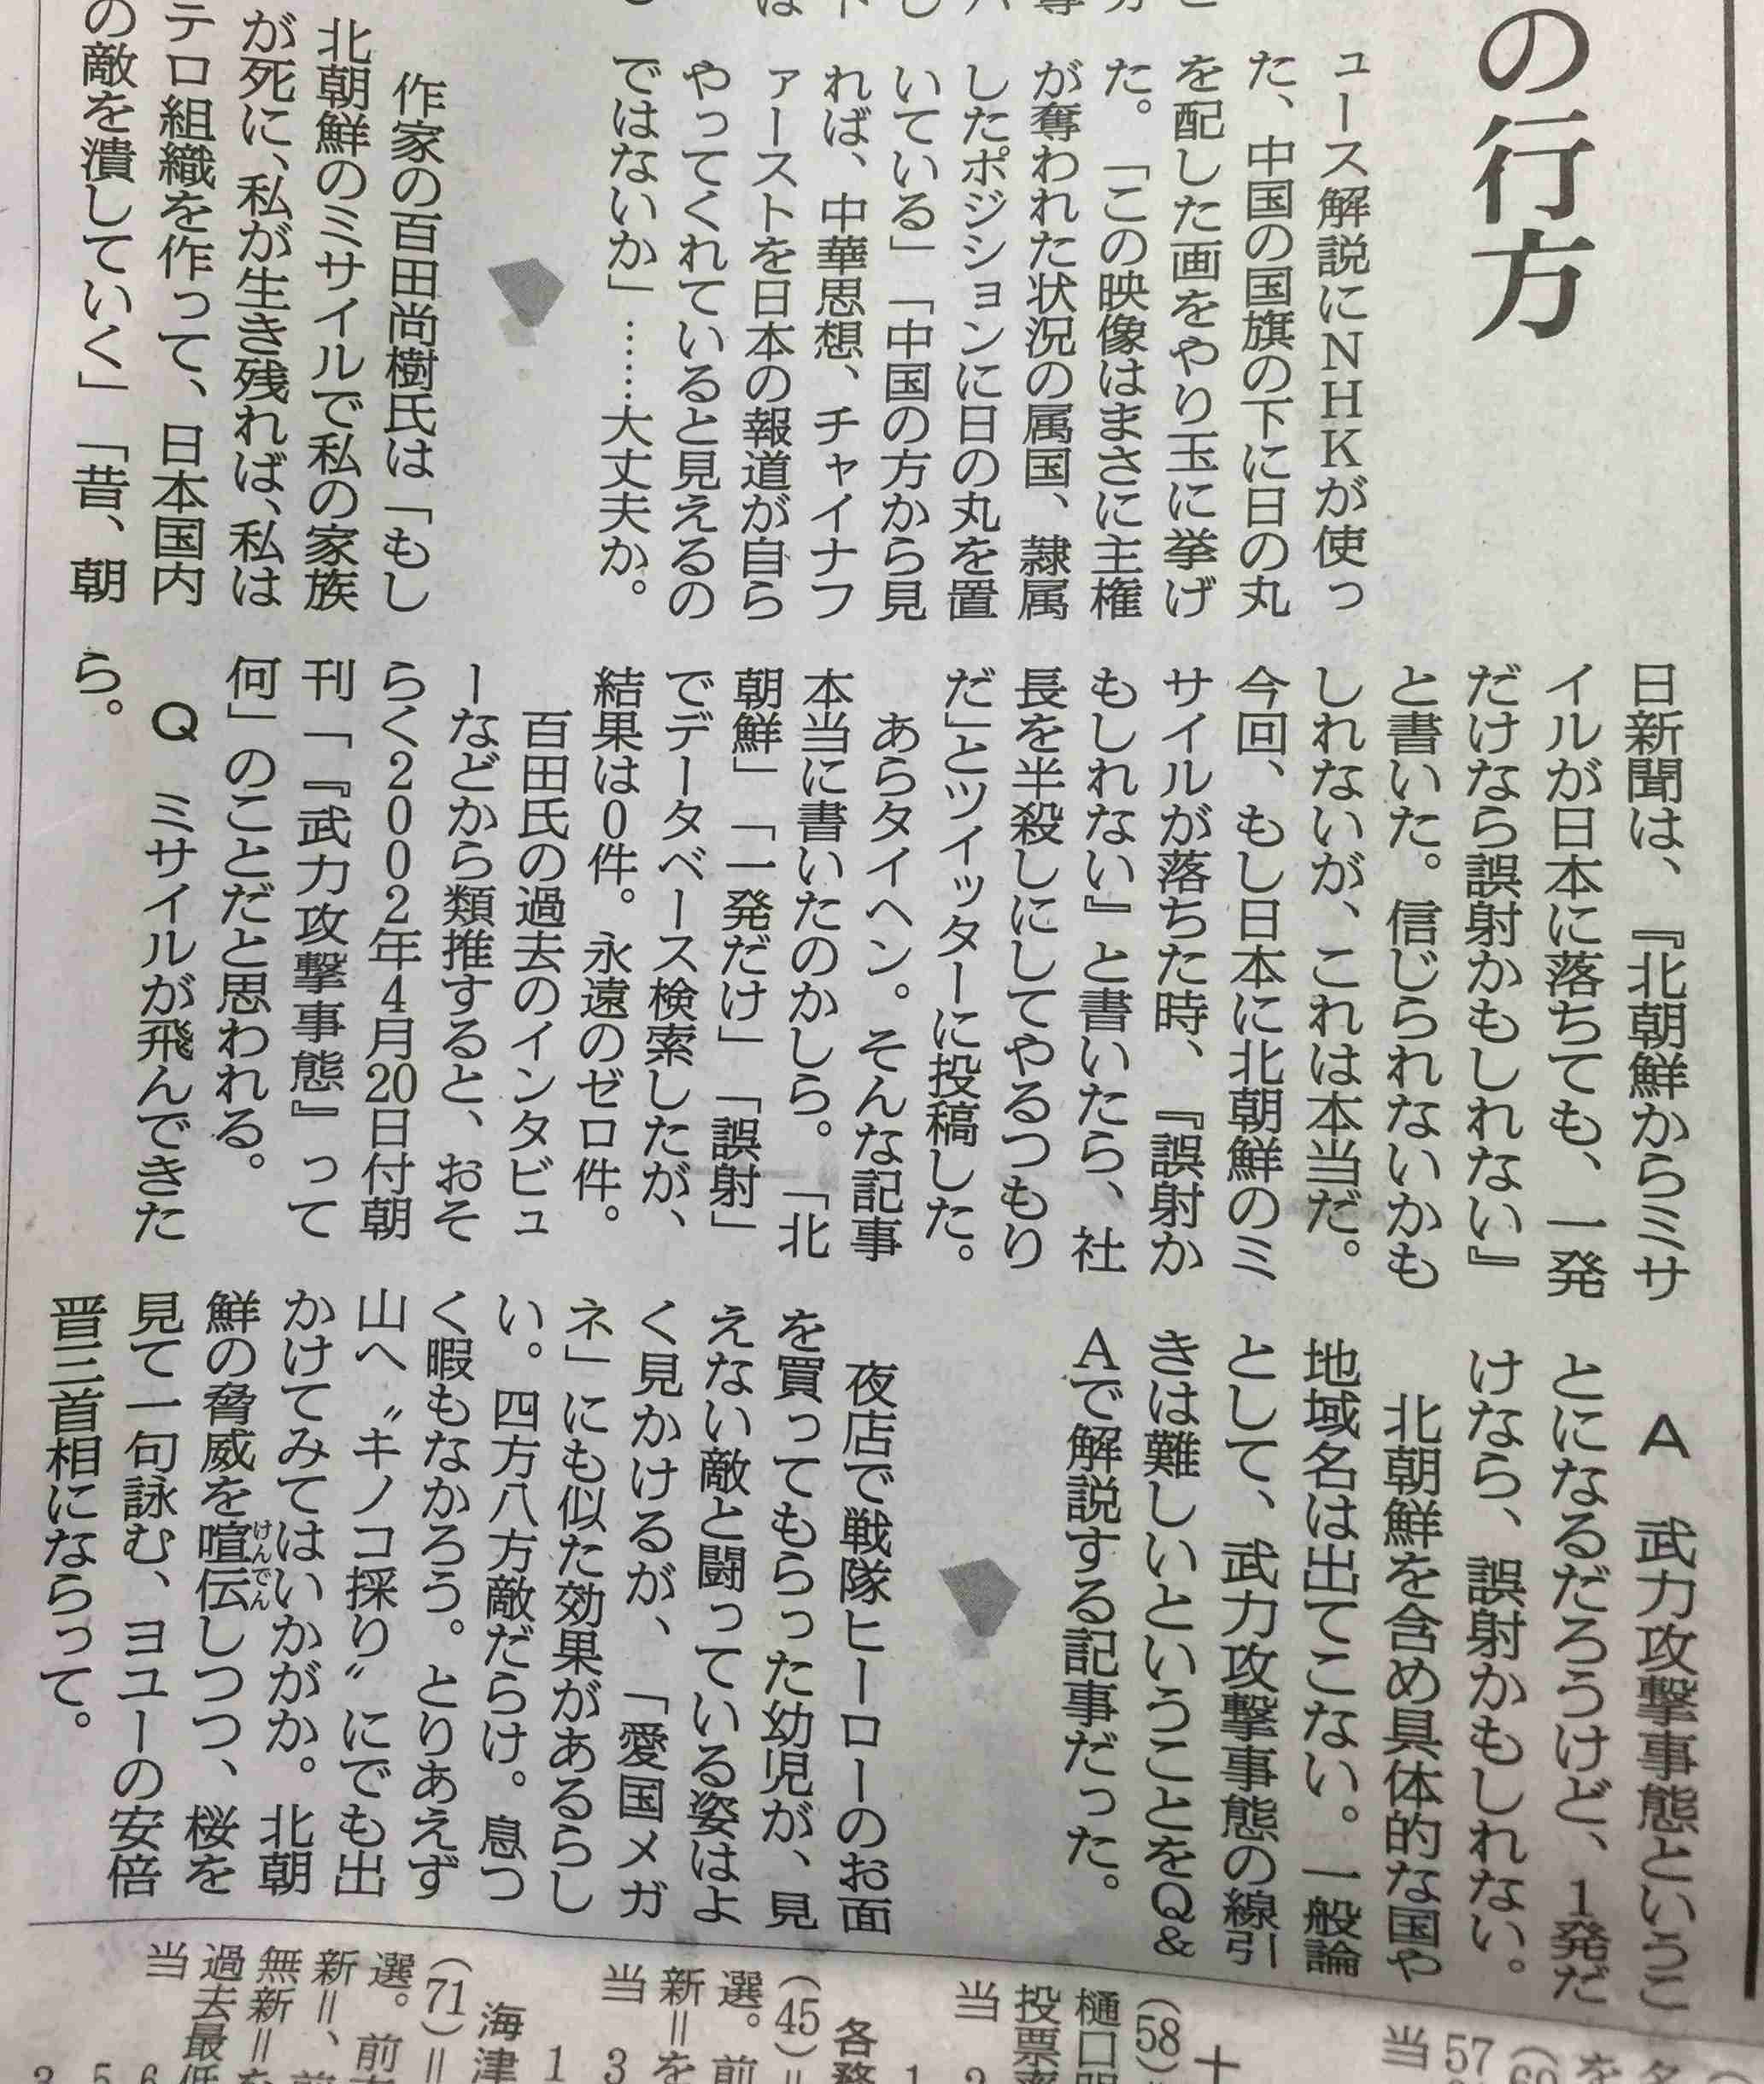 の行方
ュース解説にNHKが使っ
た、中国の国旗の下に日の丸
を配した画をやり玉に挙げ
た。「この映像はまさに主権
が奪われた状況の属国、隷属
したポジションに日の丸を置
いている」「中国の方から見
れば、中華思想、チャイナフ
ァーストを日本の報道が自ら
やってくれていると見えるの
ではないか」……大丈夫か。
作家の百田尚樹氏は「もし
北朝鮮のミサイルで私の家族
が死に、私が生き残れば、私は
テロ組織を作って、日本国内
の敵を潰していく」「昔、朝
日新聞は、『北朝鮮からミサ
イルが日本に落ちても、一発
だけなら誤射かもしれない』
と書いた。信じられないかも
しれないが、これは本当だ。
今回、もし日本に北朝鮮のミ
サイルが落ちた時、『誤射か
もしれない』と書いたら、社
長を半殺しにしてやるつもり
だ」とツイッターに投稿した。
あらタイヘン。そんな記事
本当に書いたのかしら。「北
朝鮮」「一発だけ」「誤射」
でデータベース検索したが、
結果は0件。永遠のゼロ件。
百田氏の過去のインタビュ
ーなどから類推すると、おそ
らく2002年4月20日付朝
刊「『武力攻撃事態』って
何」のことだと思われる。
Q ミサイルが飛んできた
ら。
A 武力攻撃事態というこ
とになるだろうけど、1発だ
けなら、誤射かもしれない。
北朝鮮を含め具体的な国や
地域名は出てこない。一般論
として、武力攻撃事態の線引
きは難しいということをQ&
Aで解説する記事だった。
夜店で戦隊ヒーローのお面
を買ってもらった幼児が、見
えない敵と闘っている姿はよ
く見かけるが、「愛国メガ
ネ」にも似た効果があるらし
い。四方八方敵だらけ。息つ
く暇もなかろう。とりあえず
山へ〝キノコ採り〟にでも出
かけてみてはいかがか。北朝
鮮の脅威を喧伝しつつ、桜を
けんでん
見て一句詠む、ヨユーの安倍
晋三首相にならって。
当57
十
(58)=
樋口
投票率
当 2
各務
(45)=
選。前
新=を
当 3
海津
(71)=
選。前
新=、
無新=
過去最低
当